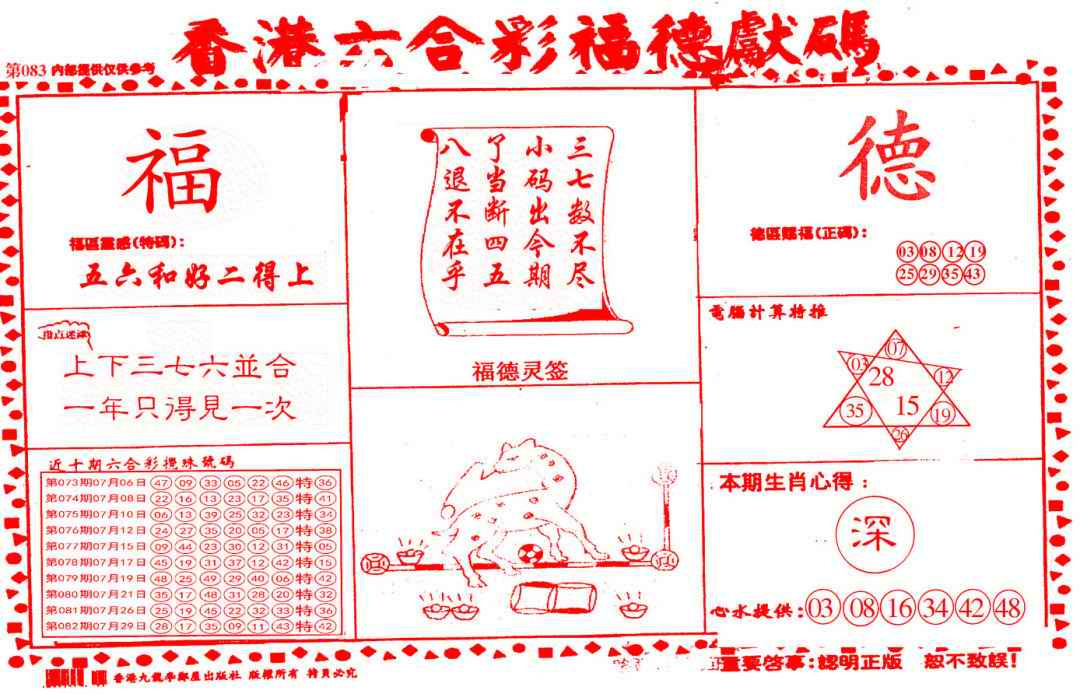 香港六合彩福德獻碼
第083 内部提供仅供参考
福
福區靈感(特碼):
五六和好二得上
指点迷津
上下三七六並合
一年只得見一次
近十期六合彩攪珠號碼
第073期07月06日 47 09 33 05 22 46 特 36
第074期07月08日 22 16 13 23 17 35 特 41
第075期07月10日 06 13 39 25 32 23 特 34
第076期07月12日 24 27 35 20 05 17 特 38
第077期07月15日 09 44 23 30 12 31 特 05
第078期07月17日 45 19 31 37 12 42 特 15
第079期07月19日 48 25 49 29 40 06 特 42
第080期07月21日 35 17 48 31 28 20 特 32
第081期07月26日 25 19 45 22 32 33 特 36
第082期07月29日 28 17 35 09 11 43 特 42
三七数不尽
小码出今期
了当断四五
八退不在乎
福德灵签
德
德區賜福(正碼):
03 08 12 19
25 29 35 43
電腦計算特推
07
03
28
12
35
15
19
26
本期生肖心得:
深
心水提供: 03 08 16 34 42 48
重要啓事:認明正版 恕不致誤!
香港九龍學鄰屋出版社 版權所有 特員必究